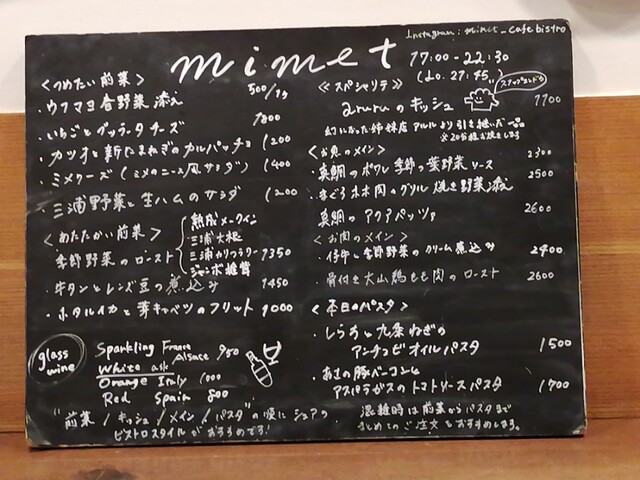 mimet
Instagram: mimet_cafebistro
17:00-22:30
(Lo. 21:45)
<つめたい前菜>
・ウフマヨ 春野菜 添え 500/1ヶ
・いちごとブッラータチーズ 1800
・カツオと新たまねぎのカルパッチョ 1200
・ミメサーズ (ミメのニース風サラダ) 1400
・三浦野菜と生ハムのサラダ 1200
<あたたかい前菜>
季節野菜のロースト 1350
熟成メークイン
三浦大根
三浦カリフラワー
ジャンボ椎茸
・牛タンとレンズ豆の煮込み 1450
・ホタルイカと芽キャベツのフリット 1000
glass wine
Sparkling France Alsace 950
White ask
Orange Italy 1000
Red Spain 800
"前菜 / キッシュ / メイン / パスタ"の順にシェアの
ビストロスタイルがおすすめです!
≪スペシャリテ≫
aruruのキッシュ 1100
幻になった姉妹店アルルより引き継いだ
※20分程お時間します
<お魚のメイン>
・真鯛のポワレ 季節の葉野菜ソース 2300
・まぐろホホ肉のグリル 焼き野菜添え 2500
真鯛のアクアパッツァ 2600
<お肉のメイン>
・仔牛と季節野菜のクリーム煮込み 2400
・骨付き大山鶏もも肉のロースト 2600
<本日のパスタ>
・しらすと九条ねぎの
アンチョビオイルパスタ 1500
・あさの豚ベーコンと
アスパラガスのトマトソースパスタ 1700
混雑時は前菜からパスタまで
まとめてのご注文をおすすめします。